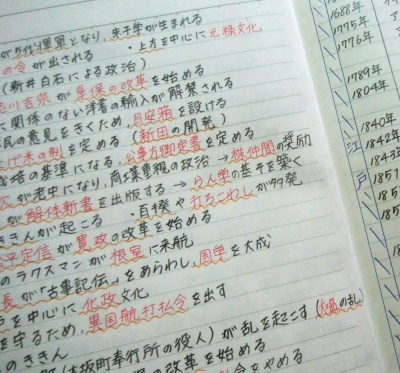 が5代将軍となり、朱子学が生まれる
の令 が出される ・上方を中心に 元禄文化
(新井白石による政治)
川吉宗が 享保の改革を始める
に関係のない洋書の輸入が解禁される
民の意見をきくため 目安箱を設ける
上げ米の制を定める (新田の開発)
の基準になる、公事方御定書を定める
が老中になり、商業重視の政治 → 株仲間の奨励
が 解体新書を出版する → らん学の基そを築く
ききんが起こる ・百揆や 打ちこわしが多発
平定信が 寛政の改革を始める
のラクスマンが 根室に来航
長が「古事記伝」をあらわし、国学を大成
を中心に 化政文化
を守るため、異国船打払令を出す
のききん
(大坂町奉行所の役人)が乱を起こす(大塩の乱)
の改革を始める
令をやめる
1688年
1775年
1776年
1789年
1804年
1840年
1842年
1843年
江
戸